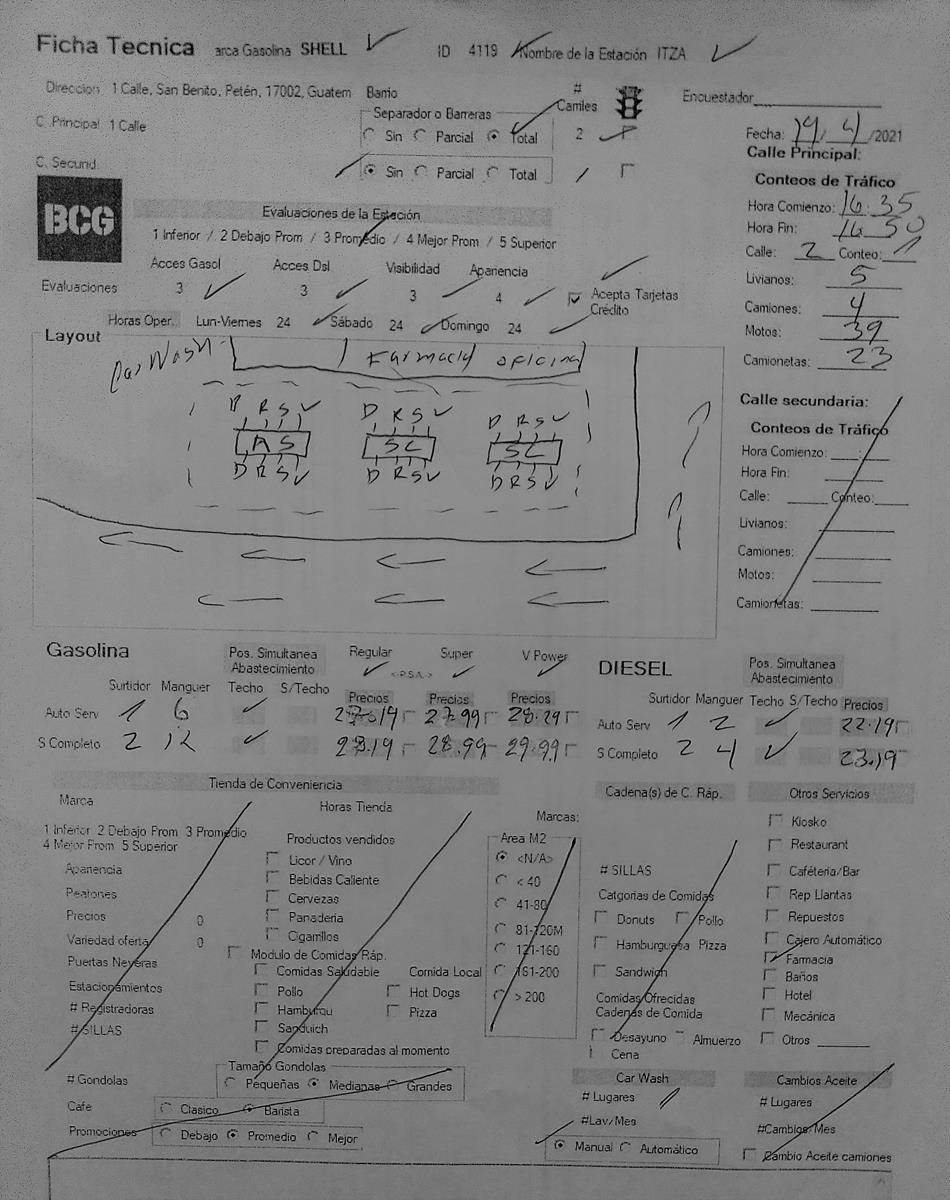 Ficha Tecnica arca Gasolina SHELL ID 4119 Nombre de la Estación ITZA
Direccion 1 Calle, San Benito, Petén, 17002, Guatem Barrio # Carriles Encuestador
Separador o Barreras
C. Principal 1 Calle Sin Parcial Total 2 Fecha: 19/4/2021
C. Secund. Sin Parcial Total
Calle Principal:
Conteos de Tráfico
BCG
Evaluaciones de la Estación
1 Inferior / 2 Debajo Prom / 3 Promedio / 4 Mejor Prom / 5 Superior
Hora Comienzo: 16:35
Hora Fin: 16:50
Calle: 2 Conteo: 1
Acces Gasol Acces Dsl Visibilidad Apariencia
Evaluaciones 3 3 3 4 Acepta Tarjetas Crédito
Livianos: 5
Camiones: 4
Motos: 39
Camionetas: 23
Horas Oper. Lun-Viernes 24 Sábado 24 Domingo 24
Layout
Car Wash Farmacia oficina
D R S V D R S V D R S V
A S S C S C
D R S V D R S V D R S V
Calle secundaria:
Conteos de Tráfico
Hora Comienzo:
Hora Fin:
Calle: Conteo:
Livianos:
Camiones:
Motos:
Camionetas:
Gasolina Pos. Simultanea Abastecimiento Regular Super V Power
<-P.S.A.->
Surtidor Manguer Techo S/Techo Precios Precios Precios
Auto Serv 1 6 27.19 27.99 28.29
S Completo 2 12 28.19 28.99 29.99
DIESEL Pos. Simultanea Abastecimiento
Surtidor Manguer Techo S/Techo Precios
Auto Serv 1 2 22.19
S Completo 2 4 23.19
Tienda de Conveniencia
Marca Horas Tienda
1 Inferior 2 Debajo Prom 3 Promedio
4 Mejor Prom 5 Superior
Apariencia
Peatones
Precios 0
Variedad oferta 0
Puertas Neveras
Estacionamientos
# Registradoras
# SILLAS
Productos vendidos
Licor / Vino
Bebidas Caliente
Cervezas
Panaderia
Cigarrillos
Modulo de Comidas Ráp.
Comidas Saludable Comida Local
Pollo Hot Dogs
Hamburqu Pizza
Sanduich
Comidas preparadas al momento
Marcas:
Area M2
<N/A>
< 40
41-80
81-120M
121-160
161-200
> 200
# Gondolas Tamaño Gondolas
Pequeñas Medianas Grandes
Cafe Clasico Barista
Promociones Debajo Promedio Mejor
Cadena(s) de C. Ráp.
# SILLAS
Catgorias de Comidas
Donuts Pollo
Hamburguesa Pizza
Sandwich
Comidas Ofrecidas
Cadenas de Comida
Desayuno Almuerzo
Cena
Otros Servicios
Kiosko
Restaurant
Caféteria/Bar
Rep Llantas
Repuestos
Cajero Automático
Farmacia
Baños
Hotel
Mecánica
Otros
Car Wash
# Lugares 1
#Lav/Mes
Manual Automático
Cambios Aceite
# Lugares
#Cambios/Mes
Cambio Aceite camiones